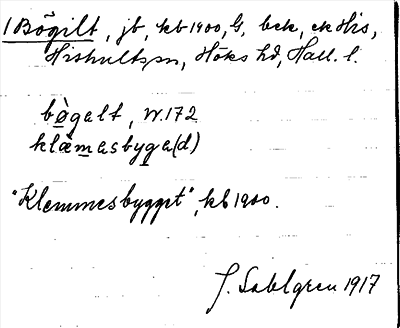 1 Bögilt, jb, kb 1900, G, bek, ek His,
Hishultssn, Höks hd, Hall. l.
bø̀galt, W. 172
klæ̀masbyga(d)
"Klemmesbygget", kb 1900.
J. Sahlgren 1917